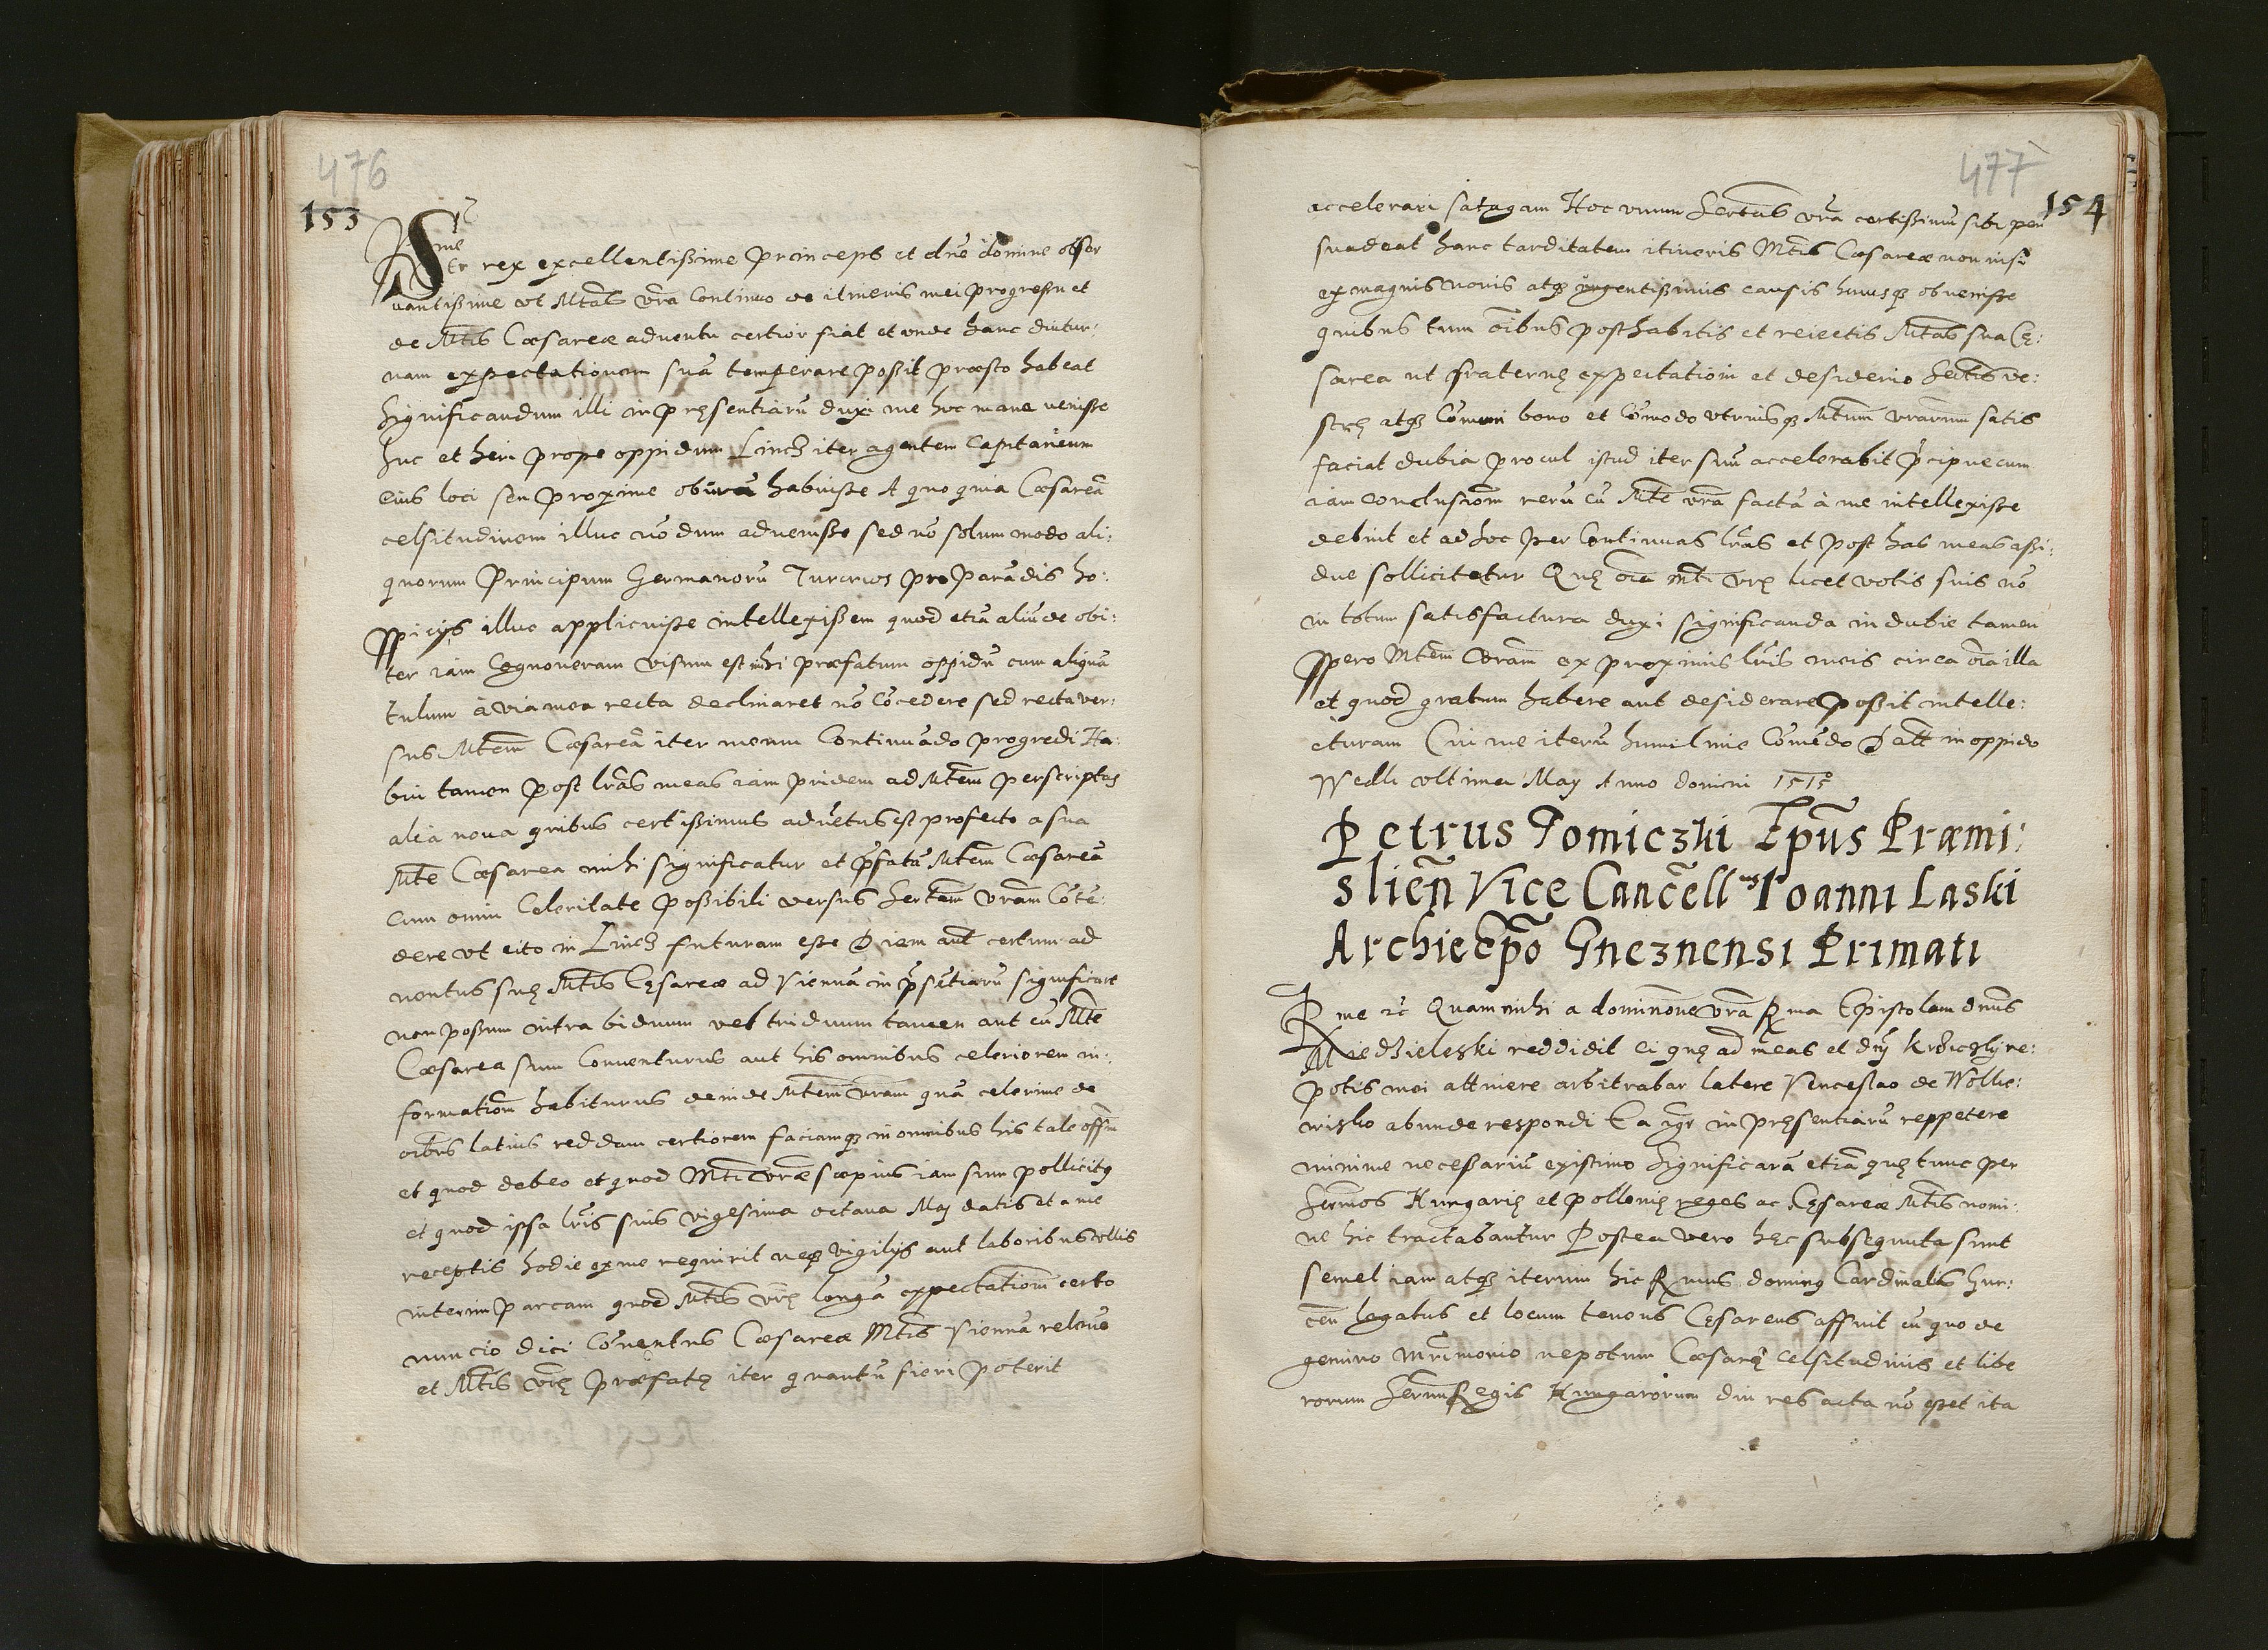 476
153
Sme
etc rex excellentißime princeps et dne domine obser
uantißime vt Mtas vra continuo de itineris mei progreßu et
de Mtis Cæsareæ aduentu certior fiat et vnde hanc diutur:
nam expectationem suã temperare poßit præsto habeat
significandum illi in pręsentiarũ duxi me hoc mane venisse
huc et heri prope oppidum Lincz iter agentem capitaneum
eius loci seu proxime obuiã habuisse A quo quia Cæsareã
celsitudinem illuc nõ dum aduenisse sed nõ solum modo ali:
quorum Principum Germanorũ pro parãdis ho:
spicijs illuc applicuisse intellexißem quod etiã aliunde obi:
ter iam cognoueram visum est mihi præfatum oppidũ cum aliquã
tulum à via mea recta declinaret nõ cõcedere sed recta ver:
sus Mtem Cæsareã iter meum continuãdo progredi Ha:
bui tamen post lras meas iam pridem ad Mtem perscriptas
alia noua quibus certißimus aduẽtus est profecto a sua
Mte Cæsarea mihi significatur et pfatã Mtem Cæsareã
cum omni celeritate poßibili versus Sertem vram cõtẽ:
dere vt cito in Lincz futuram esse Diem aut certum ad
uentus suę Mtis Cęsareæ ad Viennã in psẽtiarũ significare
non poßum intra biduum vel triduum tamen aut cũ Mte
Cæsarea sum conuenturus aut his omnibus celeriorem in:
formationẽ habiturus deinde Mtem vram quã celerime de
oibus latius reddam certiorem faciamqz in omnibus his tale offm
et quod debeo et quod Mti vræ sæpius iam sum pollicitq
et quod ipsa lris suis vigesima octaua Maj datis et a me
receptis hodie ex me requirit neqz vigilijs aut laboribus vllis
interim parcam quod Mtis vrę longã expectationẽ certo
nuncio diei cõuentus Cæsareæ Mtis Viennã releue
et Mtis vrę præfatę iter quantũ fieri poterit
477
154
accelerari satagam Hoc vnum Sertas vra certißimũ sibi per
suadeat hanc tarditatem itineris Mtis Cæsareæ non nisi
ex magnis nouis atqz vrgentißimis causis hucusqz obuenisse
quibus tum oibus posthabitis et reiectis Mtas sua Cę:
sarea ut fraternę expectationi et desiderio Sertis ve:
strę atqz cõmuni bono et cõmodo vtriusqz Mtum vrarum satis
faciat dubia procul istud iter suũ accelerabit pcipue cum
iam conclusionẽ rerũ cũ Mte vra factã à me intellexisse
debuit et ad hoc per continuas lras et post has meas aßi:
due sollicitetur Quę oia Mti vrę licet votis suis nõ
in totum satisfactura duxi significanda indubie tamen
spero Mtem vram ex proximis lris meis circa oia illa
et quod gratum habere aut desiderare poßit intelle:
cturam Cui me iterũ humilime cõmẽdo Datt in oppido
Wedli vltima May Anno domini 1515
Petrus Tomiczki Epus Præmi:
slien Vice Cancellus Ioanni Laski
Archiepo Gneznensi Primati
Rme etc Quam mihi a dominõne vra Rma Epistolam dnus
Miedzieleski reddidit ei quę ad meas et dnj ne:
potis mei attinere arbitrabar latere Venceslao de
abunde respondi Ea igr in pręsentiarũ reppetere
minime necessariũ existimo Significarã etiã quę tunc per
Sermos Hungarię et pollonię reges ac Cęsareæ Mtis nomi:
ne hic tractabantur Postea vero hęc subsequuta sunt
semel iam atqz iterum hic Rmus dominq Cardinalis Gur:
cen legatus et locum tenens Cęsareus affuit cũ quo de
gemino mrimonio nepotum Cæsareę celsitudinis et libe
rorum Sermi Regis Hungarorum diu res acta nõ esset ita